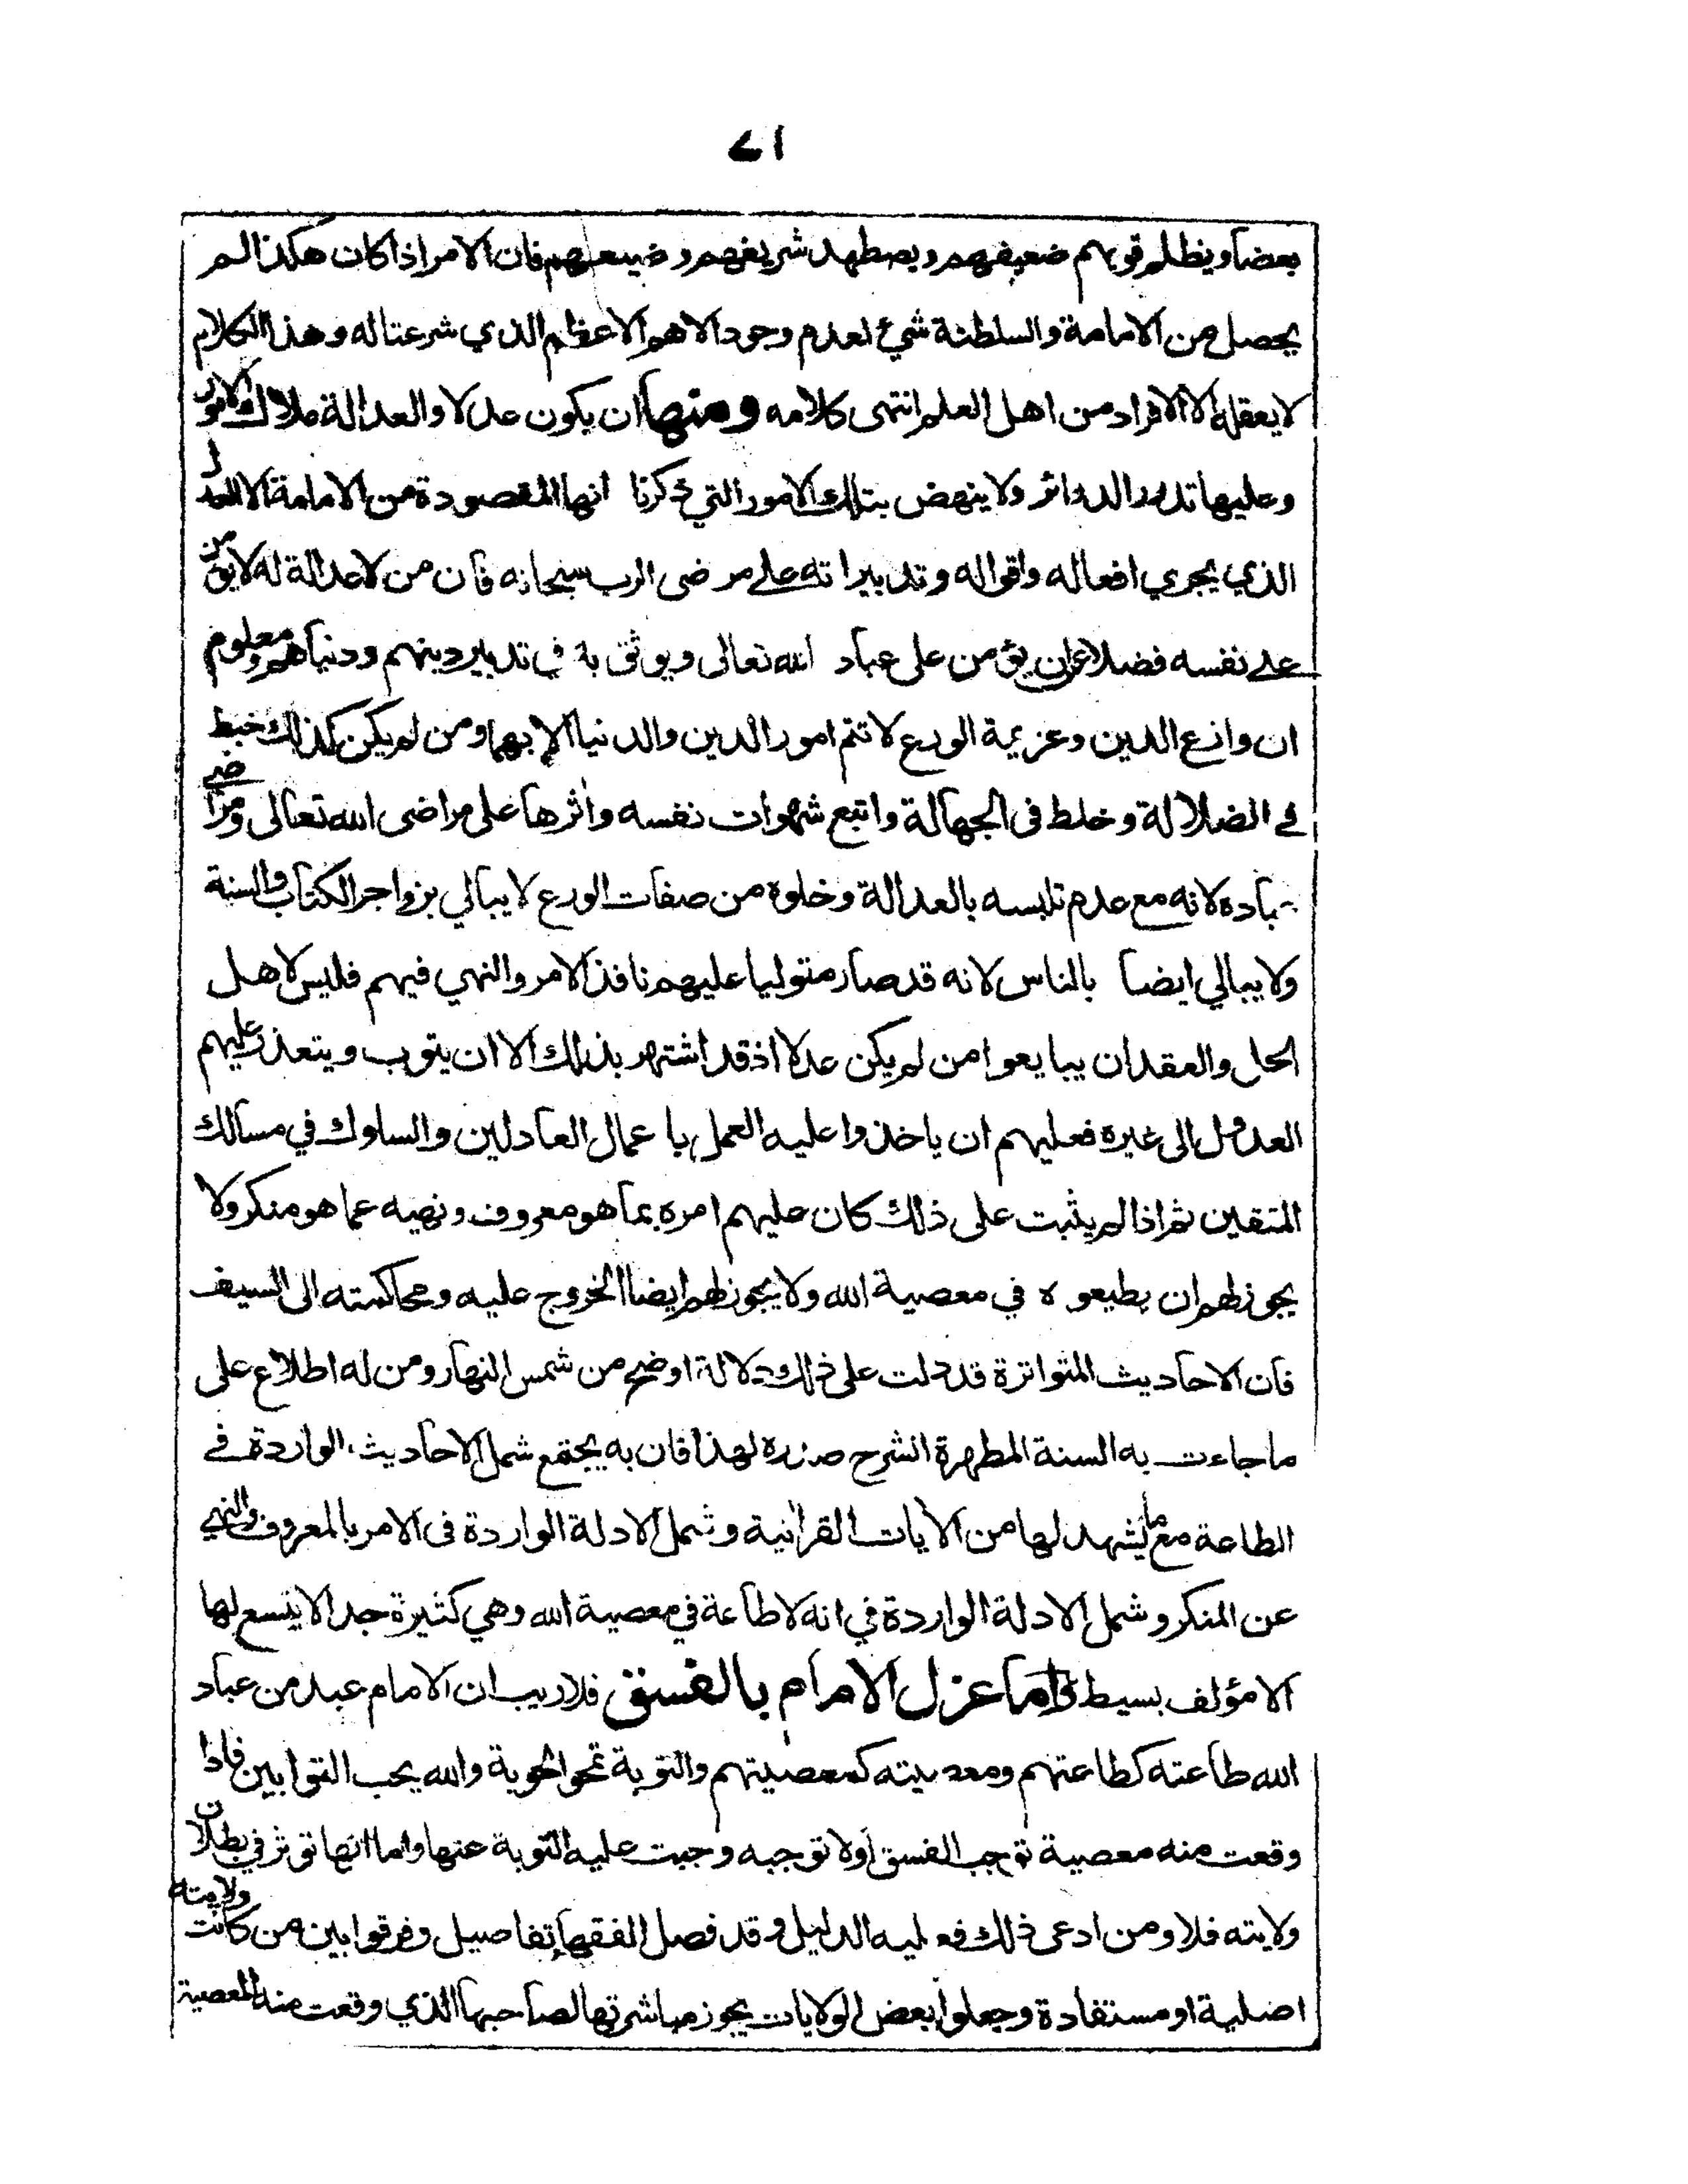 ١٧
بعضا ويظلم قويهم ضعيفهم ويضطهد شريفهم وضيعهم فان الامر اذا كان هكذا لم
يحصل من الامامة والسلطنة شيء لعدم وجود الاهم الاعظم الذي شرعتا له وهذا الكلام
لا يعقله الا الافراد من اهل العلم انتهى كلامه ومنها ان يكون عدلا والعدالة ملاك الامور
وعليها تدور الدوائر ولا ينهض بتلك الامور التي ذكرنا انها المقصودة من الامامة الا العدل
الذي يجري افعاله واقواله وتدبيراته على مرضي الرب سبحانه فان من لا عدالة له لا يؤمن
على نفسه فضلا عن ان يؤمن على عباد الله تعالى ويوثق به في تدبير دينهم ودنياهم ومعلوم
ان وازع الدين وعزيمة الورع لا تتم امور الدين والدنيا الا بهما ومن لم يكن كذلك خبط
في الضلالة وخلط في الجهالة واتبع شهوات نفسه واثرها على مراضي الله تعالى ومراضي
عباده لانه مع عدم تلبسه بالعدالة وخلوه من صفات الورع لا يبالي بزواجر الكتاب والسنة
ولا يبالي ايضا بالناس لانه قد صار متوليا عليهم نافذ الامر والنهي فيهم فليس لاهل
الحل والعقد ان يبايعوا من لم يكن عدلا اذ قد اشتهر بذلك الا ان يتوب ويتعذر عليهم
العدول الى غيره فعليهم ان ياخذوا عليه العمل باعمال العادلين والسلوك في مسالك
المتقين ثم اذا لم يثبت على ذلك كان عليهم امره بما هو معروف ونهيه عما هو منكر ولا
يجوز لهم ان يطيعوه في معصية الله ولا يجوز لهم ايضا الخروج عليه ومحاكمته الى السيف
فان الاحاديث المتواترة قد دلت على ذلك دلالة اوضح من شمس النهار ومن له اطلاع على
ما جاءت به السنة المطهرة انشرح صدره لهذا فان به يجتمع شمل الاحاديث الواردة في
الطاعة مع ما يشهد لها من الايات القرانية وشمل الادلة الواردة في الامر بالمعروف والنهي
عن المنكر وشمل الادلة الواردة في انه لا طاعة في معصية الله وهي كثيرة جدا لا يتسع لها
الا مؤلف بسيط واما عزل الامام بالفسق فلا ريب ان الامام عبد من عباد
الله طاعته كطاعتهم ومعصيته كمعصيتهم والتوبة تمحو الحوبة والله يحب التوابين فاذا
وقعت منه معصية توجب الفسق اولا توجبه وجبت عليه التوبة عنها واما انها توثر في بطلان
ولايته فلا ومن ادعى ذلك فعليه الدليل وقد فصل الفقهاء تفاصيل وفرقوا بين من كانت ولايته
اصلية او مستفادة وجعلوا بعض الولايات يجوز مباشرتها لصاحبها الذي وقعت منه المعصية